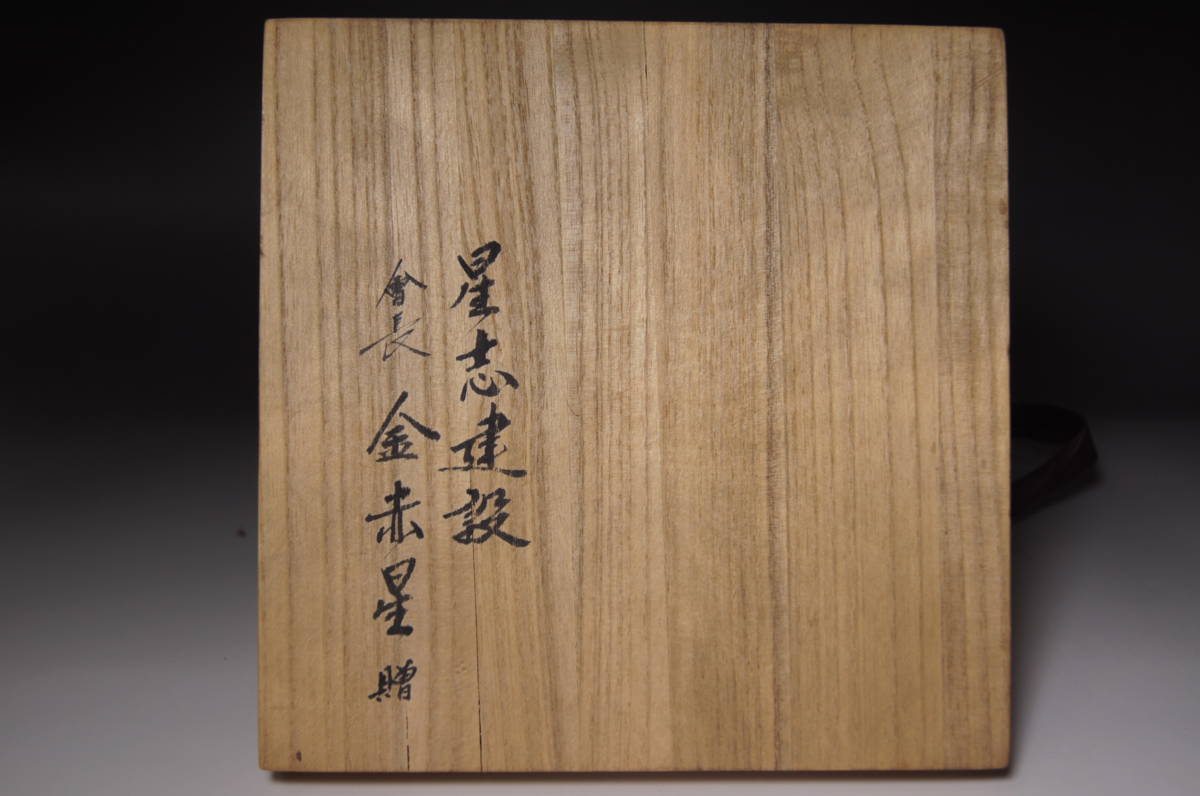 星志建設
會長 金赤星 贈